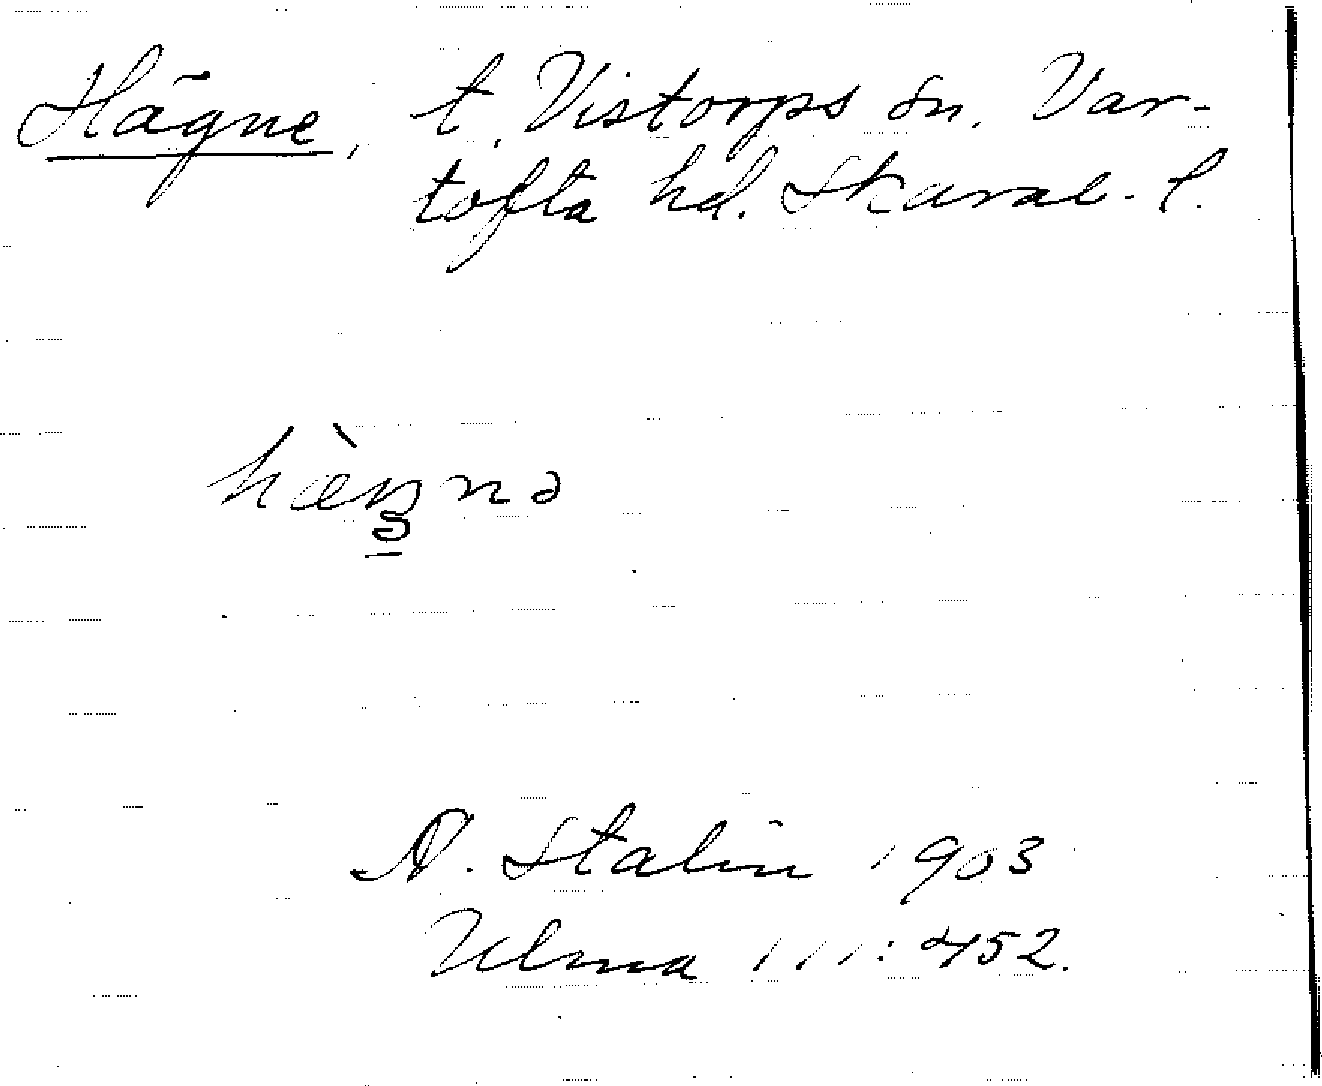 Hägne, t. Vistorps sn. Var-
tofta hd. Skarab. l.
hæ̀ŋnə
A. Stalin 1903
Ulma 111:452.